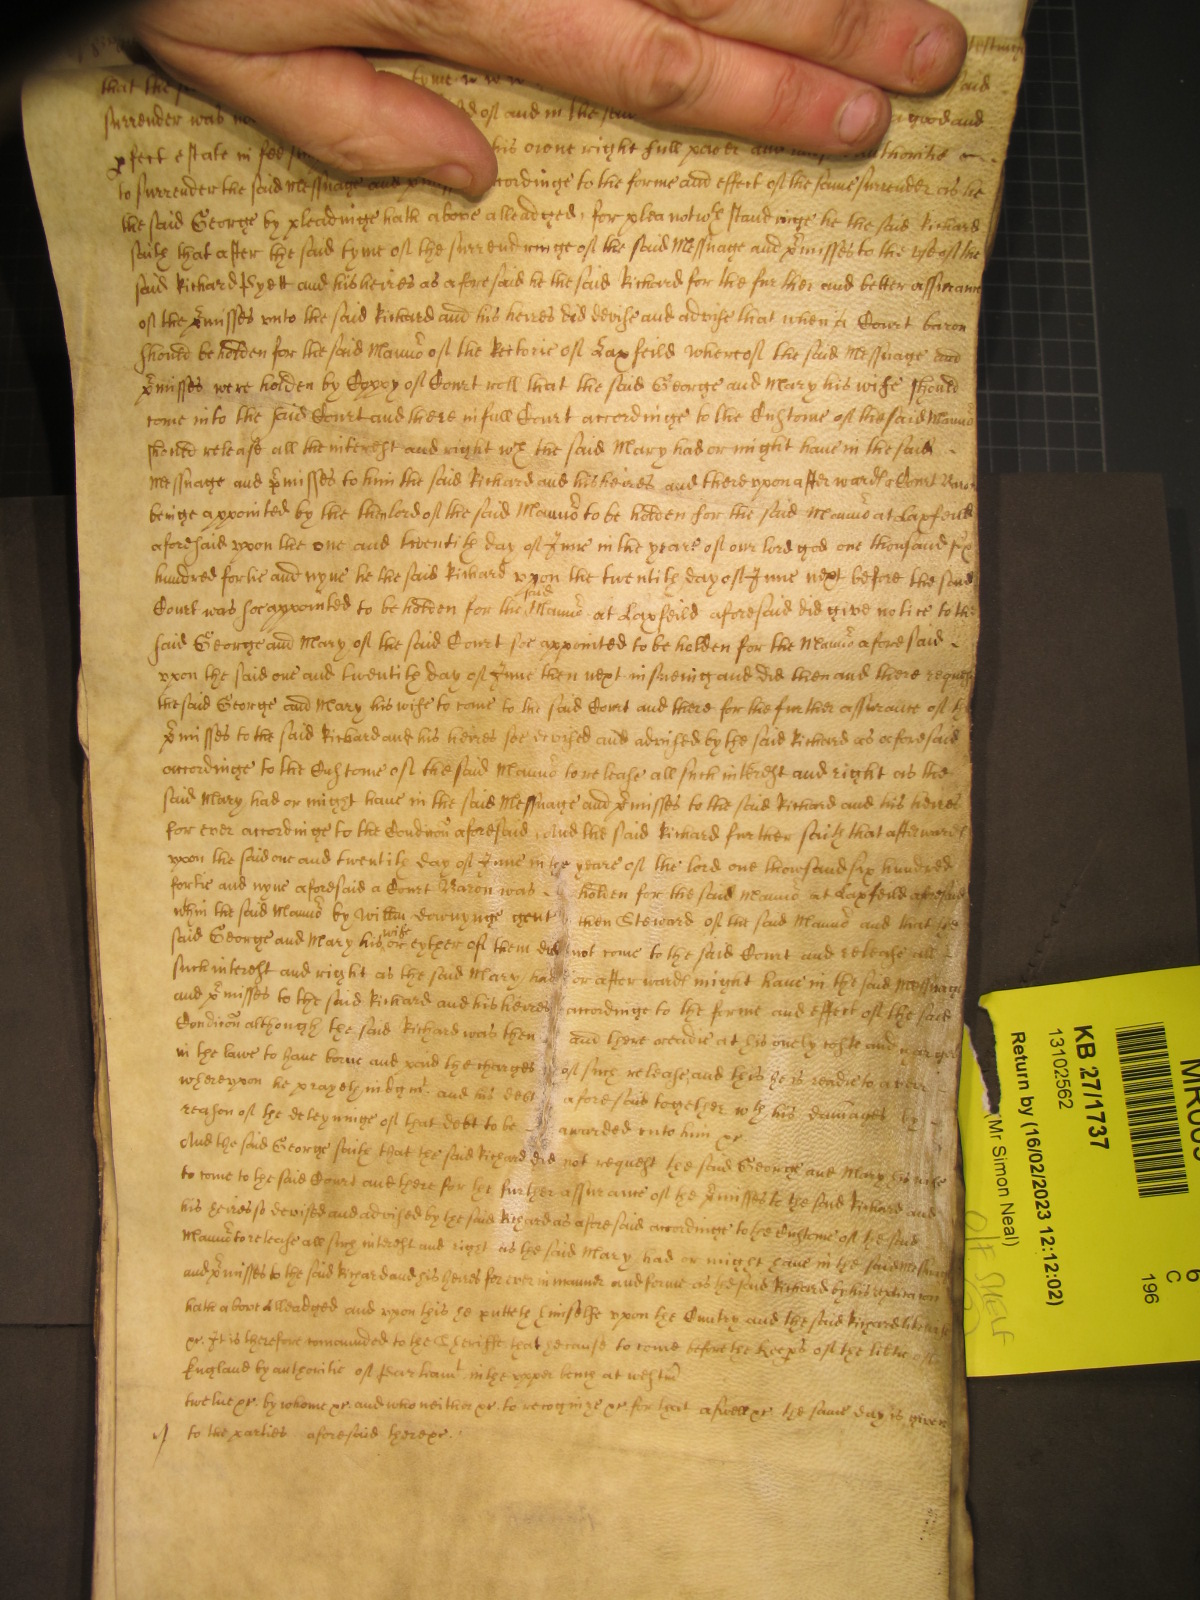 that the tyme said
surrender was of and in the said a good and
pfect estate in fee his owne right full power and authoritie
to surrender the said Messuage and pmisses accordinge to the forme and effect of the same surrender as he
the said George by pleadinge hath above alleadged, for plea notwth standinge he the said Richard
saith that after the said tyme of the surrendringe of the said Messuage and pmisses to the use of the
said Richard Pyett and his heires as aforesaid he the said Richard for the further and better assurance
of the pmisses unto the said Richard and his heires did devise and advise that when a Court baron
should be holden for the said Mannor of the Rectorie of Laxfeild whereof the said Messuage and
pmisses were holden by Coppy of Court roll that the said George and Mary his wife should
come into the said Court and there in full Court accordinge to the Custome of the said Mannor
should release all the interest and right wch the said Mary had or might have in the said
Messuage and pmisses to him the said Richard and his heires and thereupon afterwards a Court Baron
beinge appointed by the then lord of the said Mannor to be holden for the said Mannor at Laxfeild
aforesaid upon the one and twentith day of June in the yeare of our lord god one thousand six
hundred fortie and nyne he the said Richard upon the twentith day of June next before the said
Court was soe appointed to be holden for the said Mannor at Laxfeild aforesaid did give notice to the
said George and Mary of the said Court soe appointed to be holden for the Mannor aforesaid
upon the said one and twentith day of June then next insueing and did then and there request
the said George and Mary his wife to come to the said Court and there for the further assurance of the
pmisses to the said Richard and his heires soe devised and advised by the said Richard as aforesaid
accordinge to the Custome of the said Mannor to release all such interest and right as the
said Mary had or might have in the said Messuage and pmisses to the said Richard and his heires
for ever accordinge to the Condicon aforesaid, And the said Richard further saith that afterwards
upon the said one and twentith day of June in the yeare of the lord one thowsand six hundred
fortie and nyne aforesaid a Court Baron was holden for the said Mannor at Laxfeild aforesaid
wthin the said Mannor by Willm Downynge gent then Steward of the said Mannor and that the
said George and Mary his wife or eyther of them did not come to the said Court and release all
such interest and right as the said Mary had or afterwards might have in the said Messuage
and pmisses to the said Richard and his heires accordinge to the forme and effect of the said
Condicon although the said Richard was then and there readie at his onely coste and charges
in the lawe to have borne and paid the charges of such release, and this he is readie to averr
whereupon he prayeth iudgmt. and his debt aforesaid together wth his damages by
reason of the deteyninge of that debt to be awarded unto him &c.
And the said George saith that the said Richard did not request the said George and Mary his wife
to come to the said Court and there for the further assurance of the pmisses to the said Richard and
his heires so devised and advised by the said Richard as aforesaid accordinge to the Custome of the said
Mannor to release all such interest and right as the said Mary had or might have in the said Messuage
and pmisses to the said Richard and his heires for ever in manner and forme as the said Richard by his replicacion
hath above alleadged and upon this he putteth himselfe upon the Cuntry and the said Richard likewise
&c. It is therefore comaunded to the Sheriffe that he cause to come before the Keeps of the libtie of
England by authoritie of Parliamt in the upper bench at westm
twelve &c. by whome &c. and who neither &c. to recognize &c. for that aswell &c. the same day is given
to the parties aforesaid there &c.
KB 27/1737
13102562
Return by (16/02/2023 12:12:02)
(Mr Simon Neal)
C
196
O/F SHELF